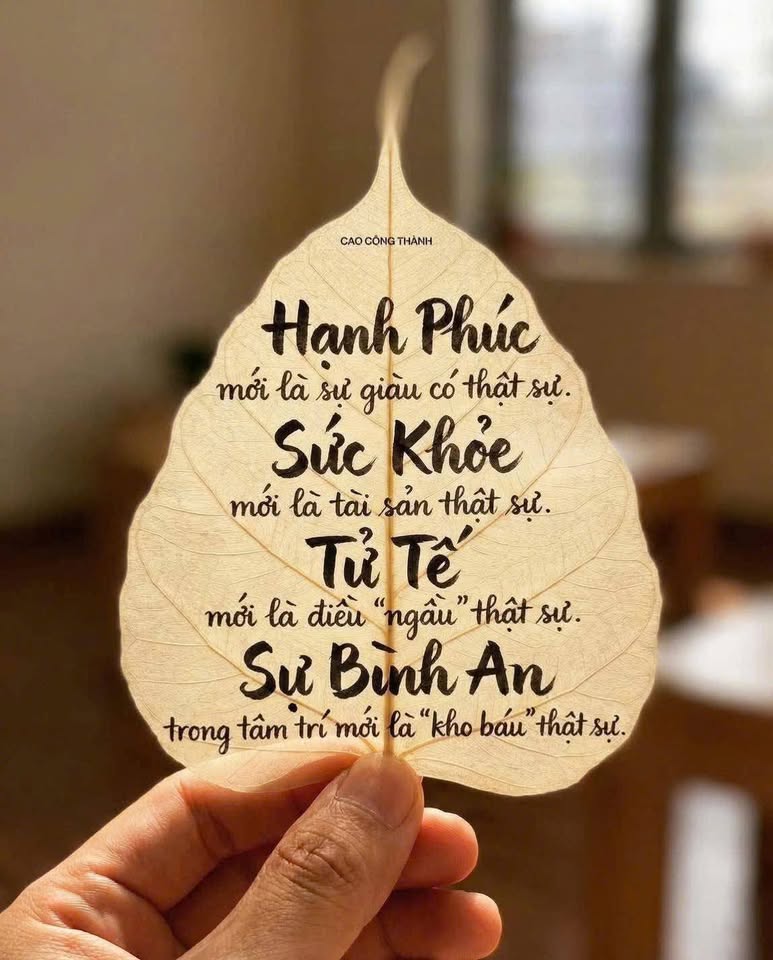 CAO CÔNG THÀNH
Hạnh Phúc
mới là sự giàu có thật sự.
Sức Khỏe
mới là tài sản thật sự.
Tử Tế
mới là điều “ngầu” thật sự.
Sự Bình An
trong tâm trí mới là “kho báu” thật sự.